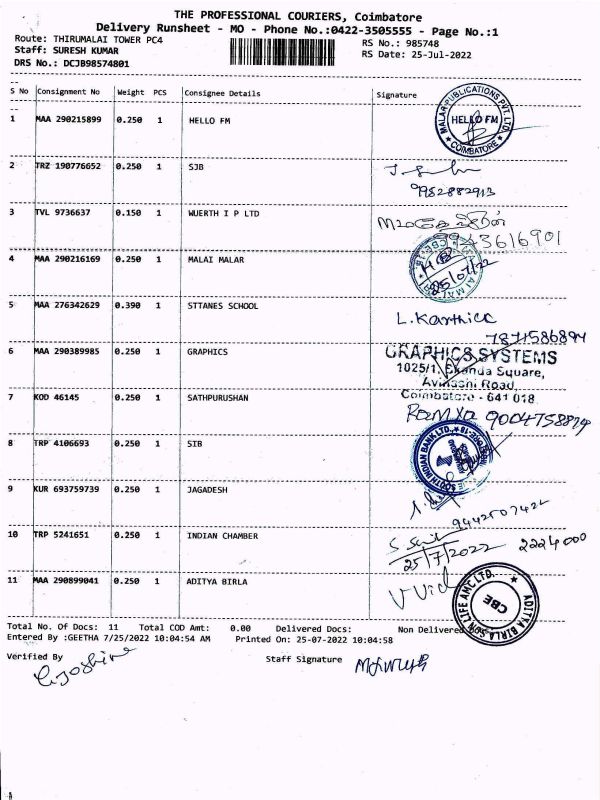 THE PROFESSIONAL COURIERS, Coimbatore
Delivery Runsheet - MO - Phone No.:0422-3505555 - Page No.:1
Route: THIRUMALAI TOWER PC4 RS No.: 985748
Staff: SURESH KUMAR RS Date: 25-Jul-2022
DRS No.: DCJB98574801
S No Consignment No Weight PCS Consignee Details Signature
1 MAA 290215899 0.250 1 HELLO FM
MALAR PUBLICATIONS PVT. LTD. HELLO FM COIMBATORE
2 TRZ 190776652 0.250 1 SJB
9952882913
3 TVL 9736637 0.150 1 WUERTH I P LTD
9943616901
4 MAA 290216169 0.250 1 MALAI MALAR
25/07/22
5 MAA 276342629 0.390 1 STTANES SCHOOL L.Karthick
7871586894
6 MAA 290389985 0.250 1 GRAPHICS GRAPHICS SYSTEMS
1025/1, Ekanda Square,
Avinashi Road,
Coimbatore - 641 018.
7 KOD 46145 0.250 1 SATHPURUSHAN Ramya 9004758874
8 TRP 4106693 0.250 1 SIB
SOUTH INDIAN BANK LTD.
9 KUR 693759739 0.250 1 JAGADESH
9442507422
10 TRP 5241651 0.250 1 INDIAN CHAMBER 2224000
25/7/2022
11 MAA 290899041 0.250 1 ADITYA BIRLA
ADITYA BIRLA SUN LIFE AMC LTD. CBE
Total No. Of Docs: 11 Total COD Amt: 0.00 Delivered Docs: Non Delivered
Entered By :GEETHA 7/25/2022 10:04:54 AM Printed On: 25-07-2022 10:04:58
Verified By Staff Signature